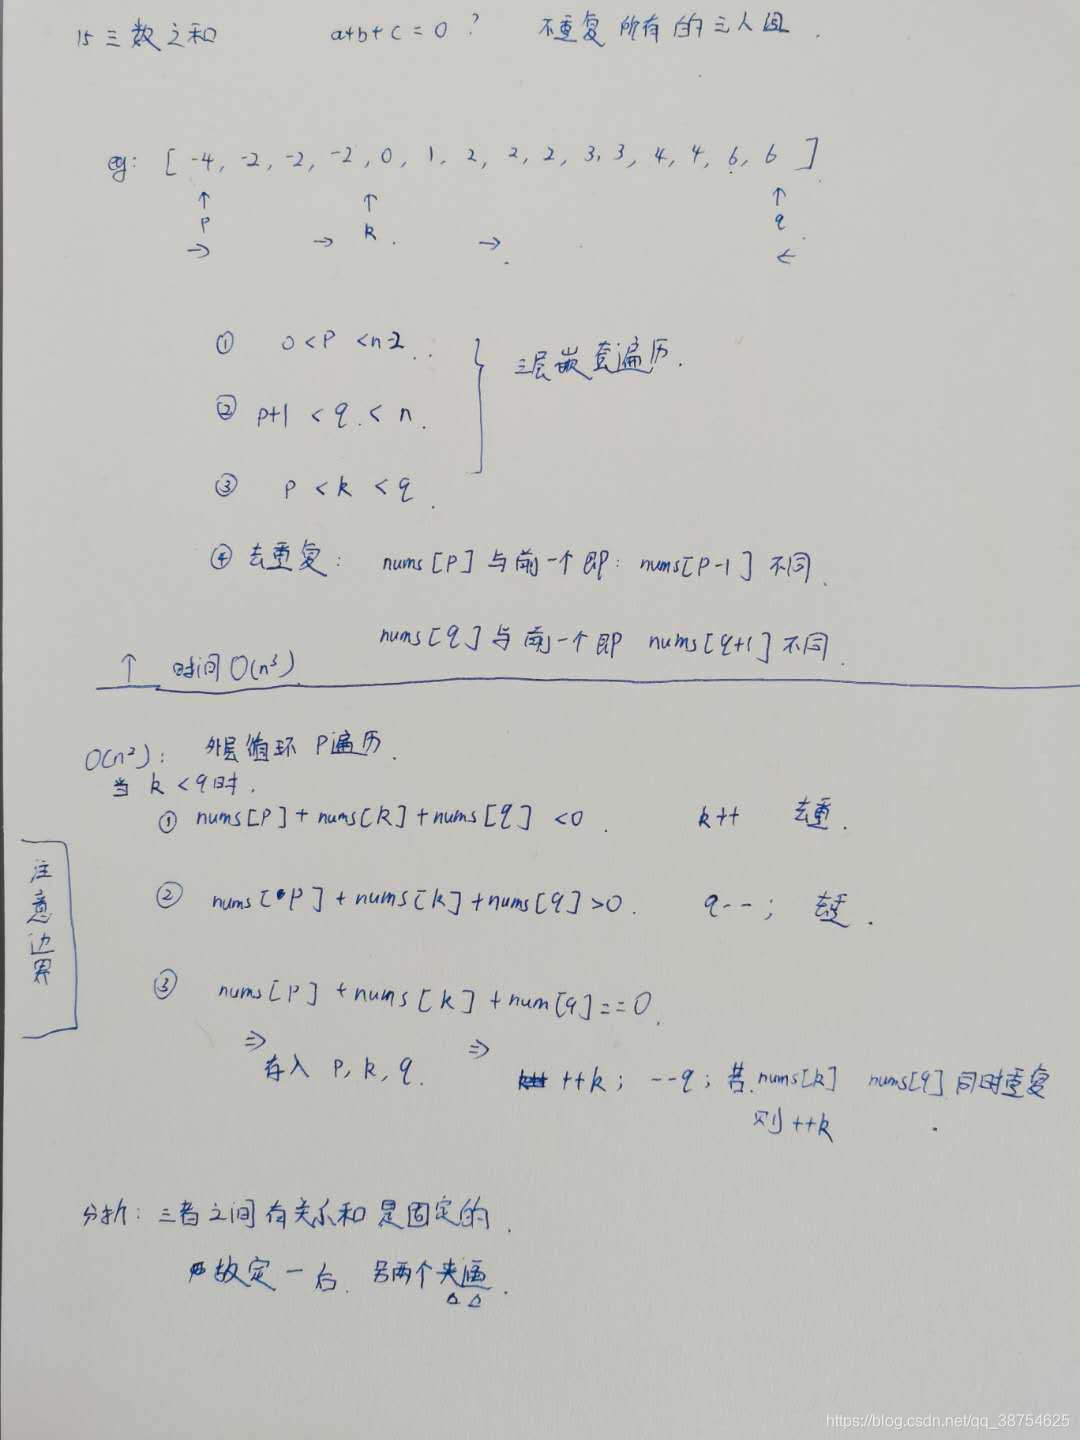 15 三数之和 a+b+c=0? 不重复所有的三人组.
eg: [ -4, -2, -2, -2, 0, 1, 2, 2, 2, 3, 3, 4, 4, 6, 6 ]
↑ ↑ ↑
P k q
→ → → ←
① 0<P<n-2
② p+1 < q < n.
三层嵌套遍历.
③ P < k < q.
④ 去重复: nums[P] 与前一个即: nums[P-1] 不同.
nums[q] 与前一个即 nums[q+1] 不同.
↑ 时间 O(n³)
O(n²): 外层循环 P遍历.
当 k < q时.
① nums[P] + nums[k] + nums[q] <0. k++ 去重.
② nums[P] + nums[k] + nums[q] >0. q--; 去重.
注意边界
③ nums[P] + nums[k] + num[q] ==0.
⇒ 存入 P, k, q. ⇒ ++k; --q; 若 nums[k] nums[q] 同时重复
则 ++k
分析: 三者之间有关系和是固定的.
故定一后. 另两个夹逼.
https://blog.csdn.net/qq_38754625